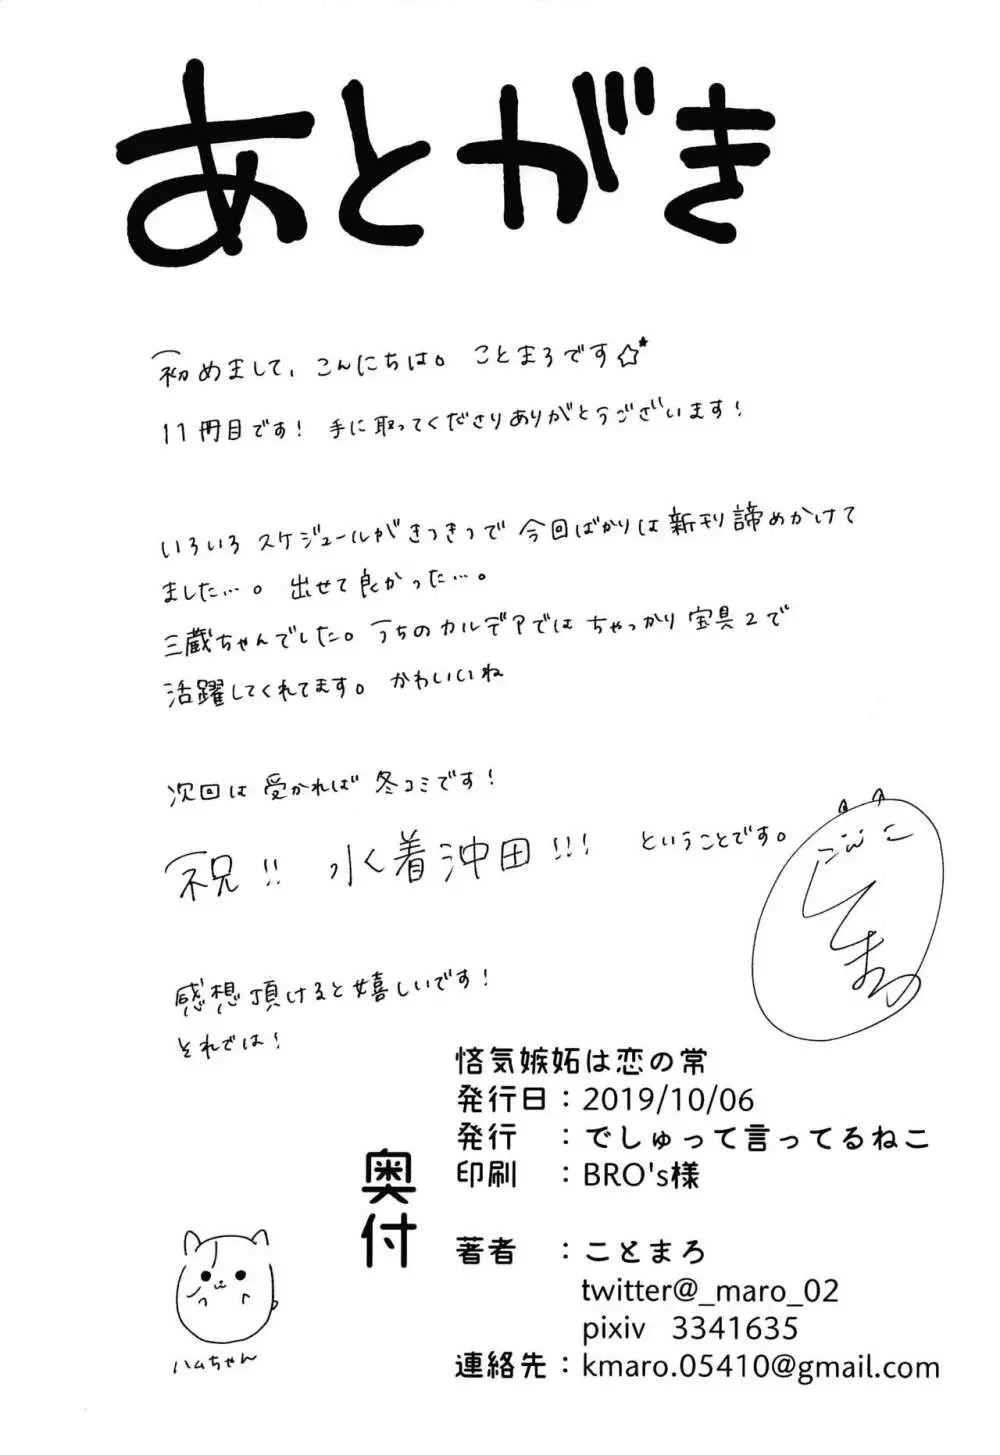 あとがき
初めまして、こんにちは。ことまろです☆★
11冊目です！ 手に取ってくださりありがとうございます！
いろいろスケジュールがきつきつで今回ばかりは新刊諦めかけて
ました…。出せて良かった…。
三蔵ちゃんでした。うちのカルデアではちゃっかり宝具2で
活躍してくれてます。かわいいね
次回は受かれば冬コミです！
祝!! 水着沖田!!! ということです。
ことまろ
感想頂けると嬉しいです！
それでは！
悋気嫉妬は恋の常
発行日：2019/10/06
発行　：でしゅって言ってるねこ
印刷　：BRO's様
奥付
著者　：ことまろ
twitter@_maro_02
pixiv 3341635
連絡先：kmaro.05410@gmail.com
ハムちゃん